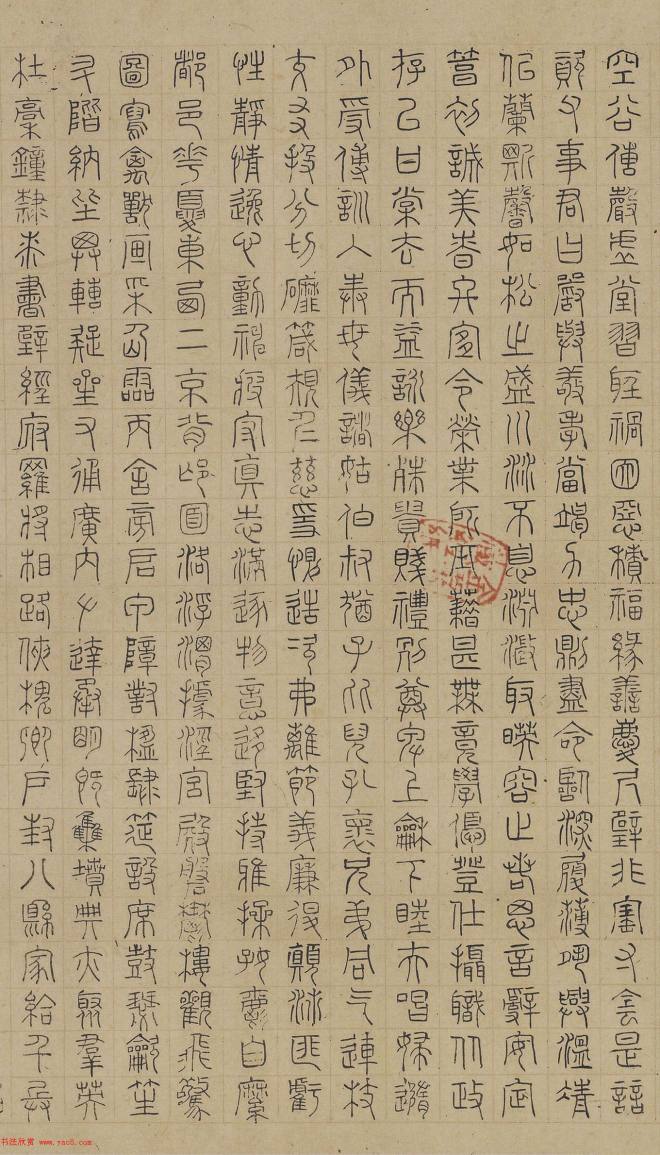 空谷傳聲虛堂習聽禍因惡積福緣善慶尺璧非寶寸陰是競
資父事君曰嚴與敬孝當竭力忠則盡命臨深履薄夙興溫凊
似蘭斯馨如松之盛川流不息淵澄取映容止若思言辭安定
篤初誠美慎終宜令榮業所基藉甚無竟學優登仕攝職從政
存以甘棠去而益詠樂殊貴賤禮別尊卑上和下睦夫唱婦隨
外受傅訓入奉母儀諸姑伯叔猶子比兒孔懷兄弟同气連枝
交友投分切磨箴規仁慈隱惻造次弗離節義廉退顛沛匪虧
性靜情逸心動神疲守真志滿逐物意移堅持雅操好爵自縻
都邑華夏東西二京背邙面洛浮渭據涇宮殿盤鬱樓觀飛驚
圖寫禽獸畫采仙靈丙舍傍啟甲帳對楹肆筵設席鼓瑟吹笙
升階納陛弁轉疑星右通廣內左達承明既集墳典亦聚羣英
杜稾鐘隸漆書壁經府羅將相路俠槐卿戶封八縣家給千兵
书法欣赏 www.yac8.com